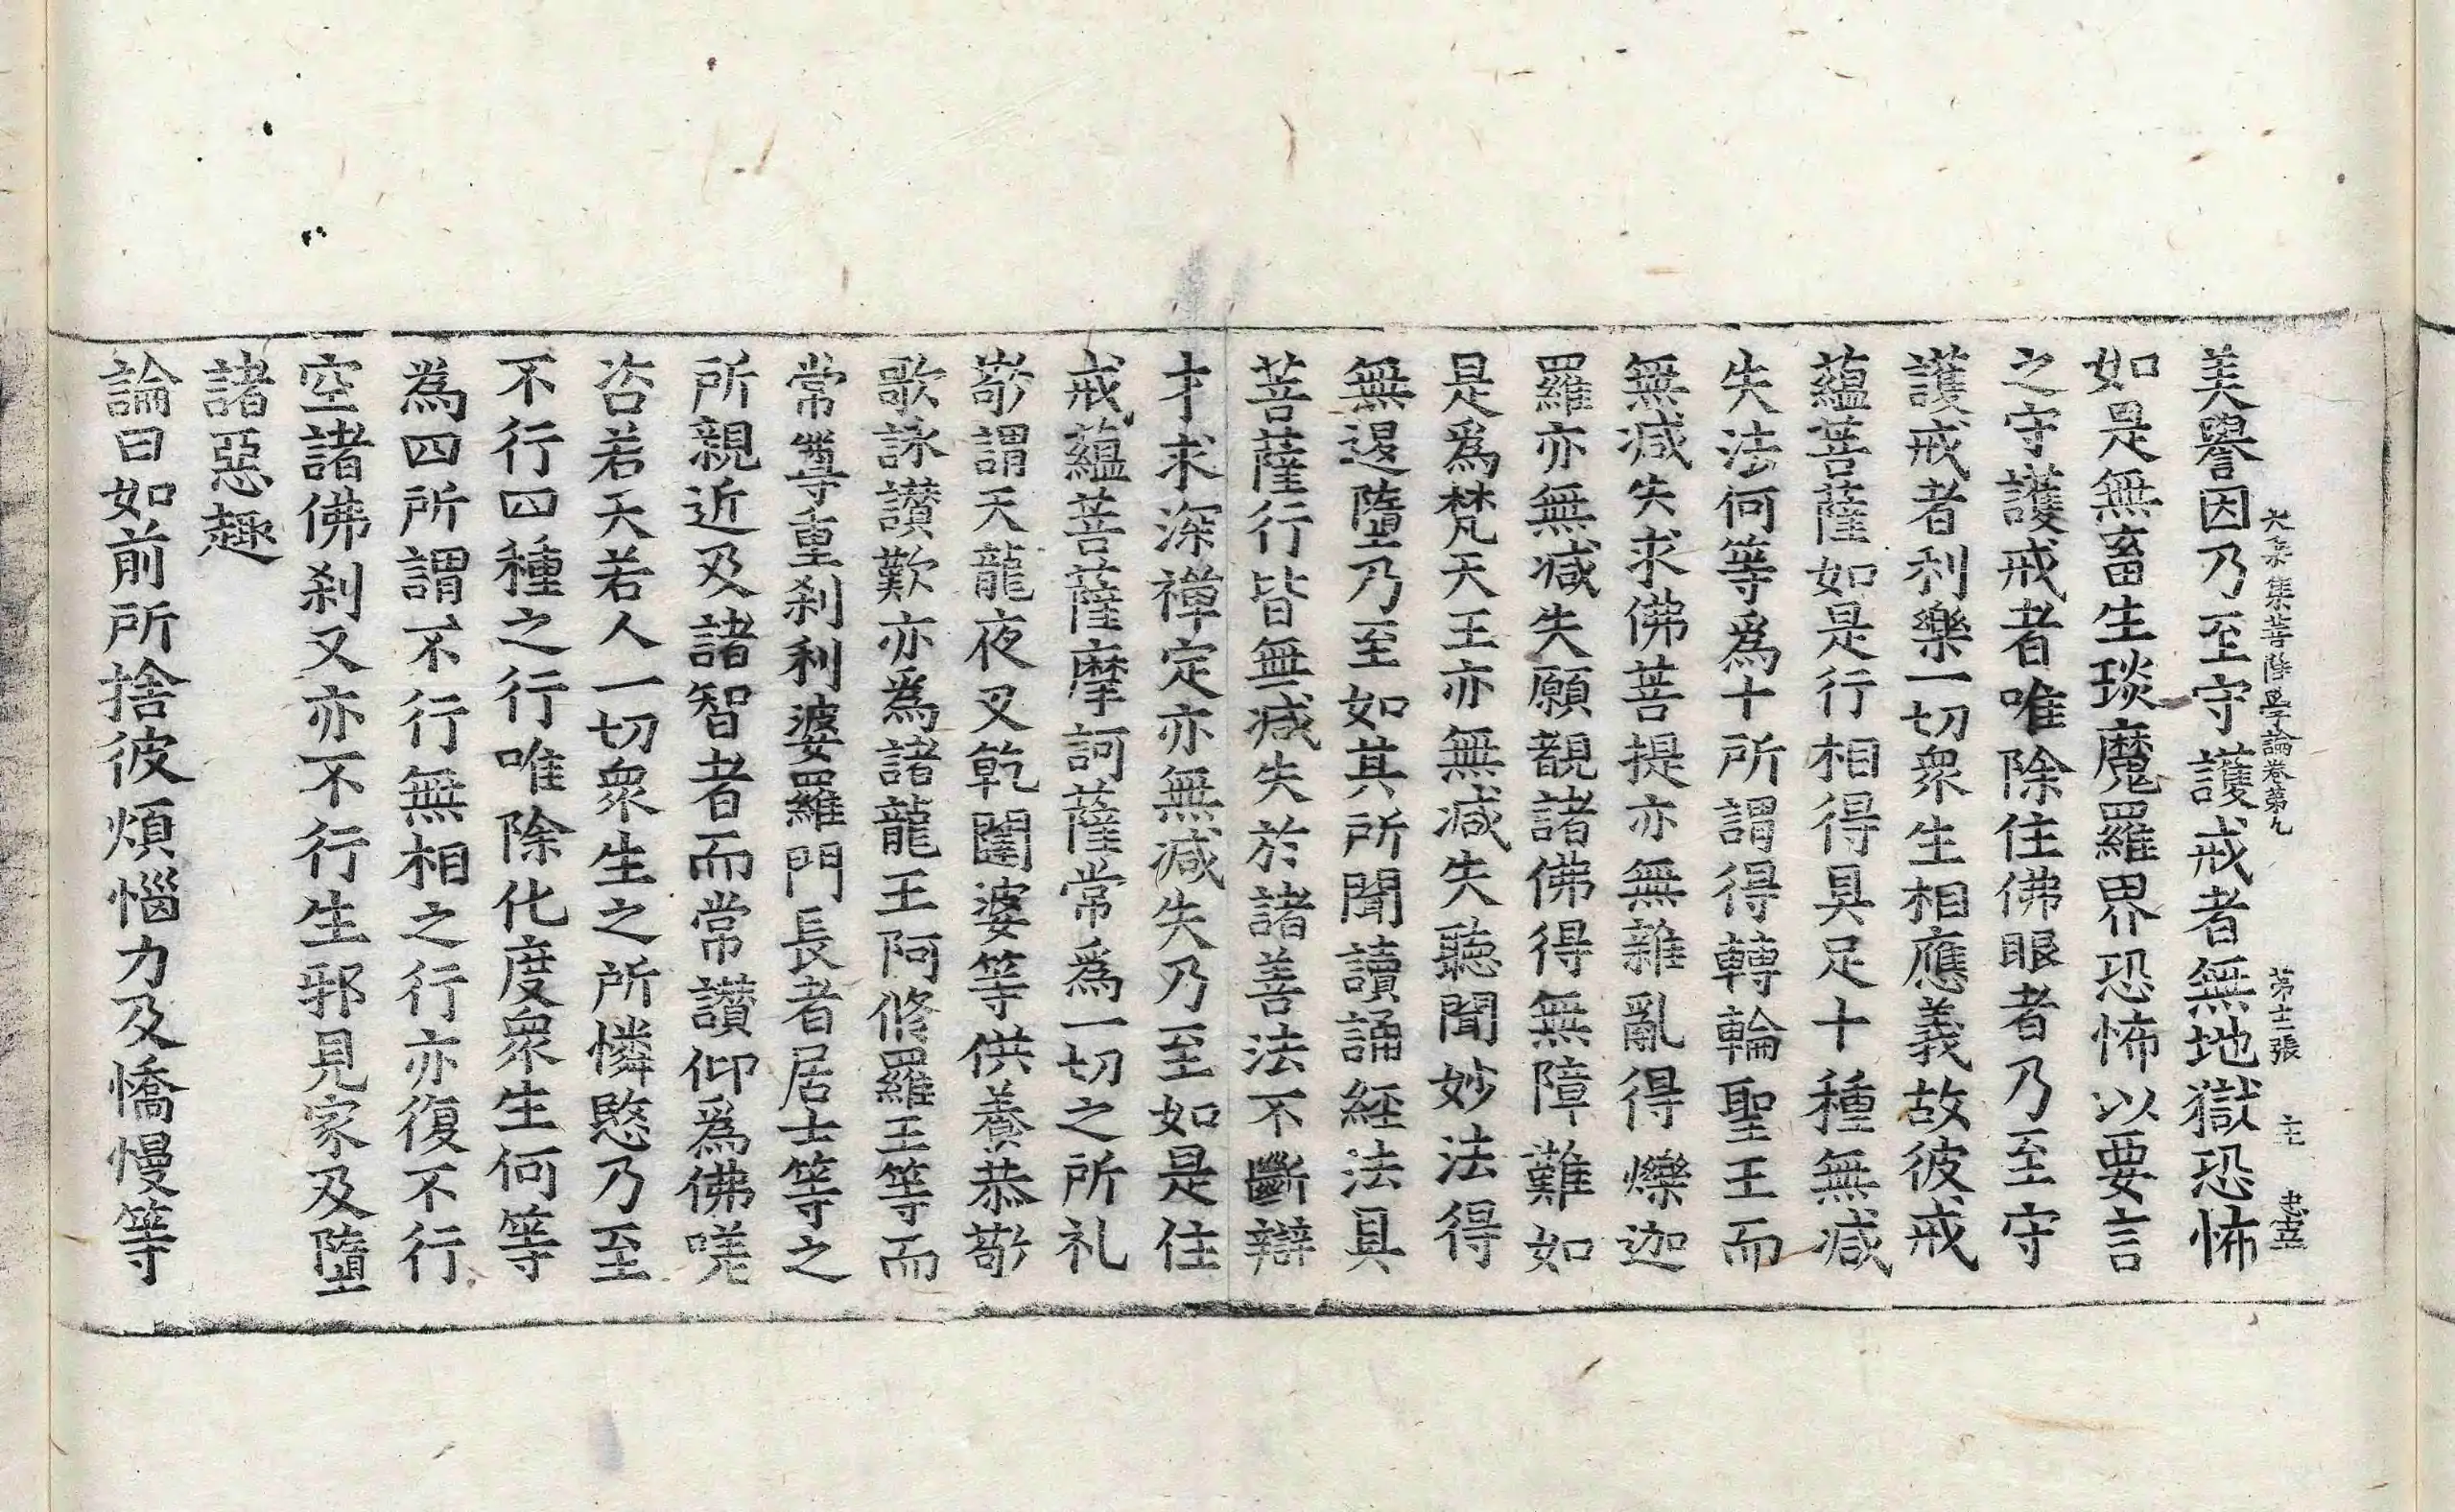 美譽因乃至守護戒者無地獄恐怖
大乗集菩薩學論卷第九 第十二張 主 忠幸
如是無畜生琰魔羅界恐怖以要言
之守護戒者唯除住佛眼者乃至守
護戒者利樂一切衆生相應義故彼戒
蘊菩薩如是行相得具足十種無减
失法何等爲十所謂得轉輪聖王而
無减失求佛菩提亦無雜亂得爍迦
羅亦無减失願覩諸佛得無障難如
是爲梵天王亦無减失聽聞妙法得
無退墮乃至如其所聞讀誦經法具
菩薩行皆無减失於諸善法不斷辯
才求深禪定亦無减失乃至如是住
戒蘊菩薩摩訶薩常爲一切之所礼
敬謂天龍夜叉乾闥婆等供養恭敬
歌詠讃歎亦爲諸龍王阿修羅王等而
常尊重刹利婆羅門長者居士等之
所親近及諸智者而常讃仰爲佛嗟
咨若天若人一切衆生之所憐愍乃至
不行四種之行唯除化度衆生何等
爲四所謂不行無相之行亦復不行
空諸佛刹又亦不行生邪見家及墮
諸惡趣
論曰如前所捨彼煩惱力及憍慢等